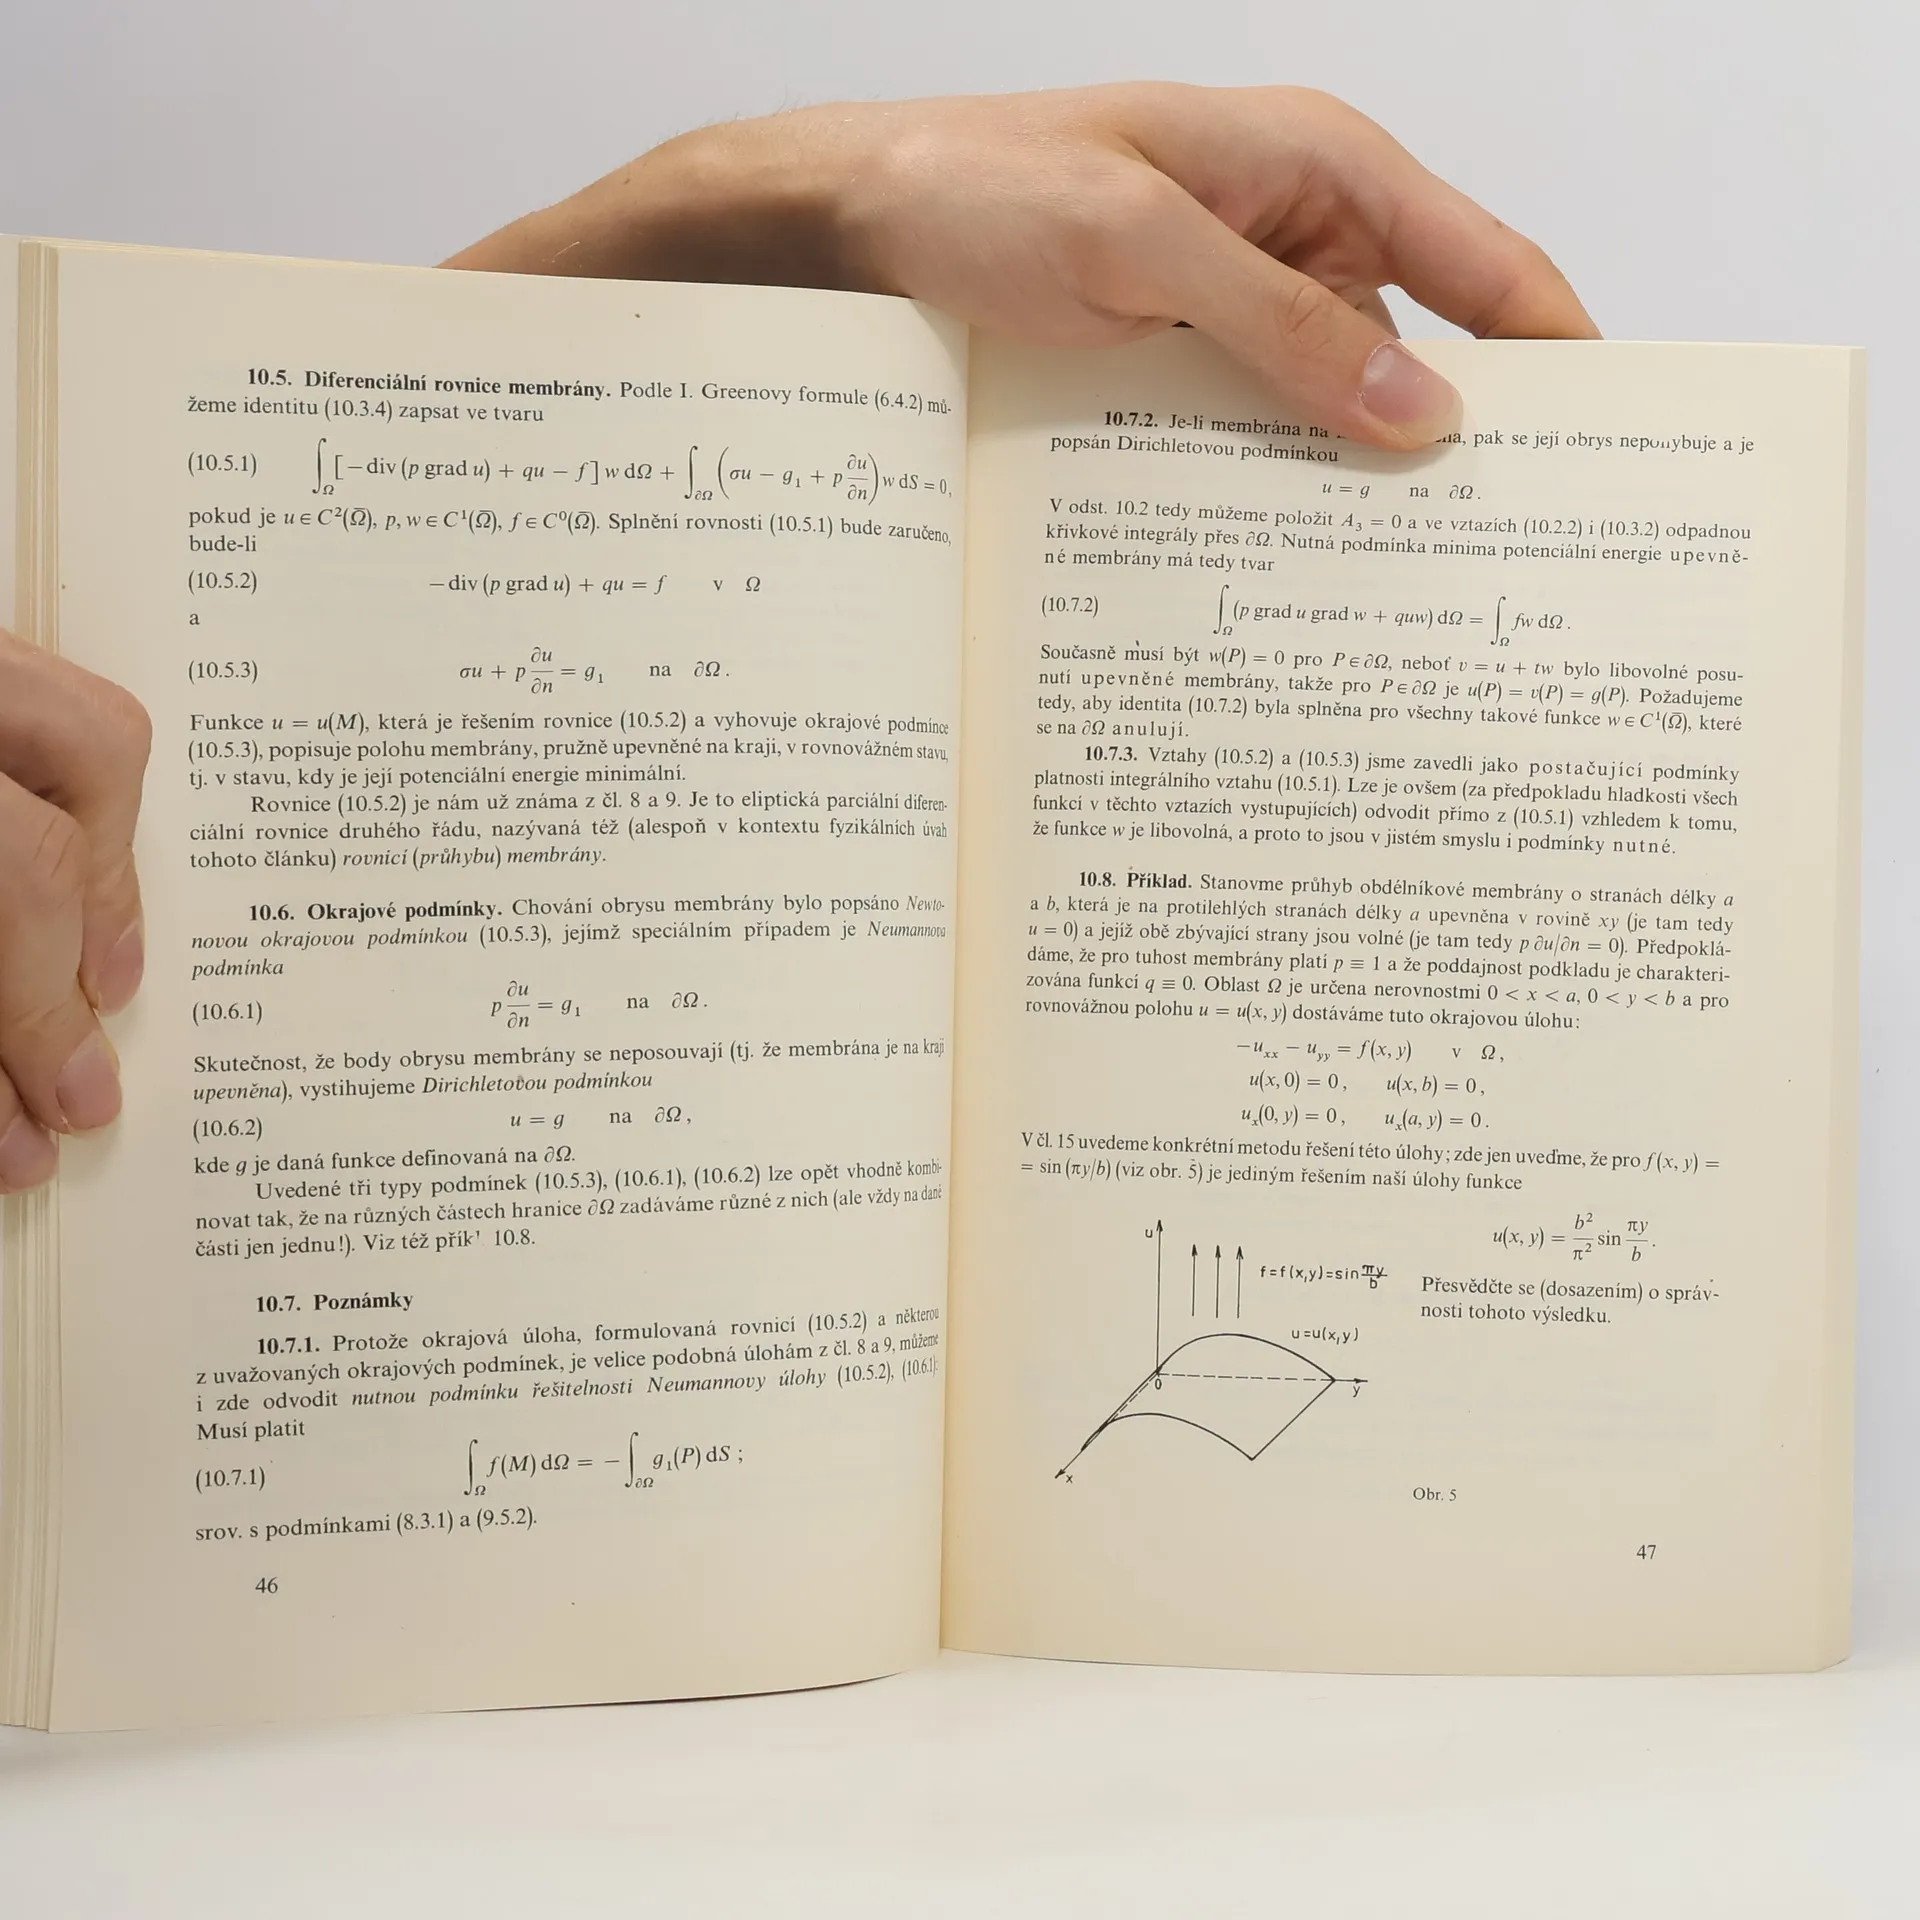 10.5. Diferenciální rovnice membrány. Podle I. Greenovy formule (6.4.2) mů-
žeme identitu (10.3.4) zapsat ve tvaru
(10.5.1) ∫_Ω [−div (p grad u) + qu − f] w dΩ + ∫_∂Ω (σu − g₁ + p ∂u/∂n) w dS = 0,
pokud je u ∈ C²(Ω̅), p, w ∈ C¹(Ω̅), f ∈ C⁰(Ω̅). Splnění rovnosti (10.5.1) bude zaručeno,
bude-li
(10.5.2) −div (p grad u) + qu = f v Ω
a
(10.5.3) σu + p ∂u/∂n = g₁ na ∂Ω.
Funkce u = u(M), která je řešením rovnice (10.5.2) a vyhovuje okrajové podmínce
(10.5.3), popisuje polohu membrány, pružně upevněné na kraji, v rovnovážném stavu,
tj. v stavu, kdy je její potenciální energie minimální.
Rovnice (10.5.2) je nám už známa z čl. 8 a 9. Je to eliptická parciální diferen-
ciální rovnice druhého řádu, nazývaná též (alespoň v kontextu fyzikálních úvah
tohoto článku) rovnicí (průhybu) membrány.
10.6. Okrajové podmínky. Chování obrysu membrány bylo popsáno Newto-
novou okrajovou podmínkou (10.5.3), jejímž speciálním případem je Neumannova
podmínka
(10.6.1) p ∂u/∂n = g₁ na ∂Ω.
Skutečnost, že body obrysu membrány se neposouvají (tj. že membrána je na kraji
upevněna), vystihujeme Dirichletovou podmínkou
(10.6.2) u = g na ∂Ω,
kde g je daná funkce definovaná na ∂Ω.
Uvedené tři typy podmínek (10.5.3), (10.6.1), (10.6.2) lze opět vhodně kombi-
novat tak, že na různých částech hranice ∂Ω zadáváme různé z nich (ale vždy na dané
části jen jednu!). Viz též přík' 10.8.
10.7. Poznámky
10.7.1. Protože okrajová úloha, formulovaná rovnicí (10.5.2) a některou
z uvažovaných okrajových podmínek, je velice podobná úlohám z čl. 8 a 9, můžeme
i zde odvodit nutnou podmínku řešitelnosti Neumannovy úlohy (10.5.2), (10.6.1):
Musí platit
(10.7.1) ∫_Ω f(M) dΩ = − ∫_∂Ω g₁(P) dS ;
srov. s podmínkami (8.3.1) a (9.5.2).
46
10.7.2. Je-li membrána na pak se její obrys nepohybuje a je
popsán Dirichletovou podmínkou
u = g na ∂Ω.
V odst. 10.2 tedy můžeme položit A₃ = 0 a ve vztazích (10.2.2) i (10.3.2) odpadnou
křivkové integrály přes ∂Ω. Nutná podmínka minima potenciální energie upevně-
né membrány má tedy tvar
(10.7.2) ∫_Ω (p grad u grad w + quw) dΩ = ∫_Ω fw dΩ.
Současně musí být w(P) = 0 pro P ∈ ∂Ω, neboť v = u + tw bylo libovolné posu-
nutí upevněné membrány, takže pro P ∈ ∂Ω je u(P) = v(P) = g(P). Požadujeme
tedy, aby identita (10.7.2) byla splněna pro všechny takové funkce w ∈ C¹(Ω̅), které
se na ∂Ω anulují.
10.7.3. Vztahy (10.5.2) a (10.5.3) jsme zavedli jako postačující podmínky
platnosti integrálního vztahu (10.5.1). Lze je ovšem (za předpokladu hladkosti všech
funkcí v těchto vztazích vystupujících) odvodit přímo z (10.5.1) vzhledem k tomu,
že funkce w je libovolná, a proto to jsou v jistém smyslu i podmínky nutné.
10.8. Příklad. Stanovme průhyb obdélníkové membrány o stranách délky a
a b, která je na protilehlých stranách délky a upevněna v rovině xy (je tam tedy
u = 0) a jejíž obě zbývající strany jsou volné (je tam tedy p ∂u/∂n = 0). Předpoklá-
dáme, že pro tuhost membrány platí p ≡ 1 a že poddajnost podkladu je charakteri-
zována funkcí q ≡ 0. Oblast Ω je určena nerovnostmi 0 < x < a, 0 < y < b a pro
rovnovážnou polohu u = u(x, y) dostáváme tuto okrajovou úlohu:
−uₓₓ − u_yy = f(x, y) v Ω,
u(x, 0) = 0, u(x, b) = 0,
uₓ(0, y) = 0, uₓ(a, y) = 0.
V čl. 15 uvedeme konkrétní metodu řešení této úlohy; zde jen uveďme, že pro f(x, y) =
= sin (πy/b) (viz obr. 5) je jediným řešením naší úlohy funkce
u(x, y) = b²/π² sin πy/b.
Přesvědčte se (dosazením) o správ-
nosti tohoto výsledku.
u
f=f(x,y)=sin πy/b
u=u(x,y)
0
y
x
Obr. 5
47